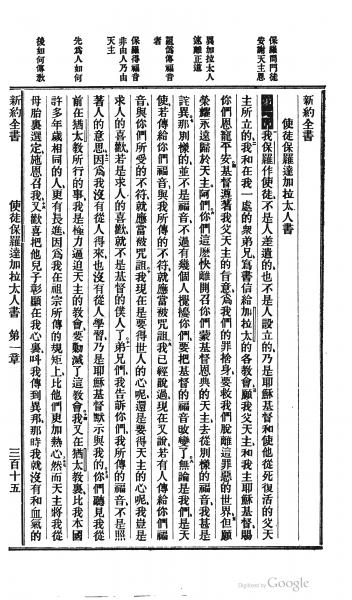 新約全書
使徒保羅達加拉太人書
保羅問門徒
安謝天主恩
異加拉太人
遂離正道
傳福音
者
保羅得福音
非由人乃由
天主
先為人如何
後如何傳教
第一章 我保羅作使徒、不是人差遣的、也不是人設立的、乃是耶穌基督和使他從死復活的父天
主所立的、我和在一處的衆弟兄、爲書信給加拉太的各教會、願我父天主和我主耶穌基督賜
你們恩寵平安、基督遵著我父天主的旨意、爲我們的罪捨身、要救我們脫離這罪惡的世界、但願
榮耀永遠歸於天主、阿們、你們這麽快離開召你們蒙基督恩典的天主、去從別樣的福音、我甚是
詫異、那別樣的、並不是福音、不過有幾個人攪擾你們、要把基督的福音改變了、無論是我們、是天
使、若傳給你們福音、與我所傳給你們的不符、就應當被咒詛、我已經說過、現在又說、若有人傳給你們福
音、與你們所受的不符、就應當被咒詛、我現在是要得世人的心呢、還是要得天主的心呢、我豈是
求人的喜歡、若是求人的喜歡、就不是基督的僕人了、弟兄們、我告訴你們、我所傳的福音、不是照
著人的意思、因爲我沒有從人得來、也沒有從人學習、乃是耶穌基督默示與我的、你們聽見我從
前在猶太教所行的事、我是極力逼迫天主的教會、要勦滅了這教會、我又在猶太教裏、比我本國
許多年歲相同的人、更有長進、因爲我在祖宗所傳的規矩上、比他們更加熱心、然而天主將我從
母胎裏選定、施恩召我、又歡喜把他兒子彰顯在我心裏、叫我傳到異邦、那時我就沒有和血氣的
新約全書 使徒保羅達加拉太人書 第一章 三百十五
Digitized by Google